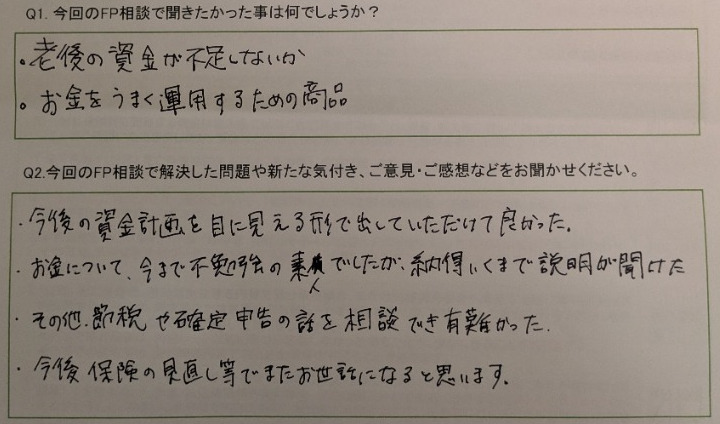 Q1. 今回のFP相談で聞きたかった事は何でしょうか？
・老後の資金が不足しないか
・お金をうまく運用するための商品
Q2.今回のFP相談で解決した問題や新たな気付き、ご意見・ご感想などをお聞かせください。
・今後の資金計画を目に見える形で出していただけて良かった。
・お金について、今まで不勉強の素人でしたが、納得いくまで説明が聞けた
・その他、節税や確定申告の話を相談でき有難かった。
・今後保険の見直し等でまたお世話になると思います。